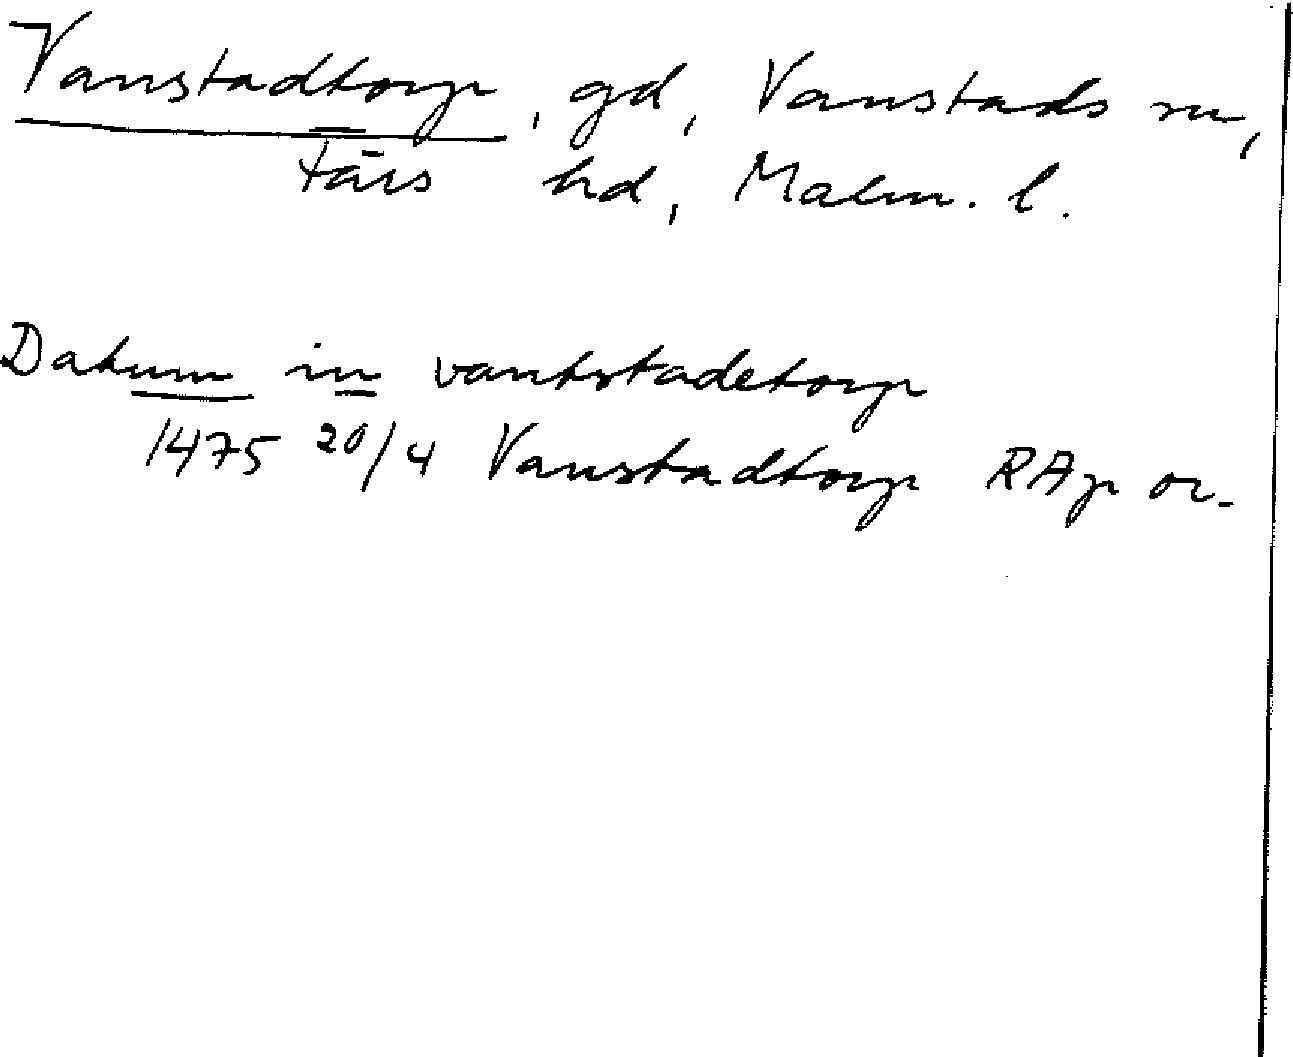 Vanstadtorp, gd, Vanstads sn,
Färs hd, Malm. l.
Datum in vantstadetorp
1475 20/4 Vanstadtorp RAp or.